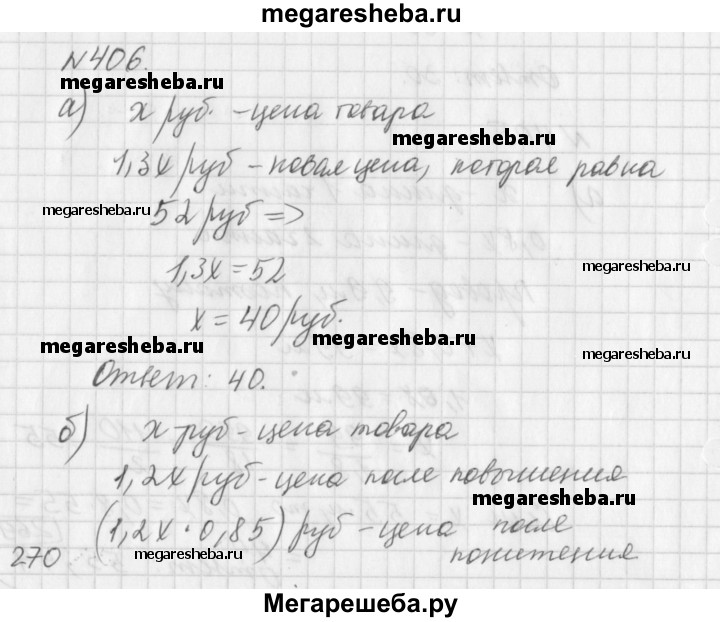 megaresheba.ru
№406.
megaresheba.ru
а) x руб. - цена товара
megaresheba.ru
1,3x руб - новая цена, которая равна
megaresheba.ru
52 руб =>
1,3x = 52
megaresheba.ru
x = 40 руб.
megaresheba.ru
megaresheba.ru
Ответ: 40.
б) x руб - цена товара
1,2x руб - цена после повышения
megaresheba.ru
(1,2x · 0,85) руб - цена после
понижения
270
megaresheba.ru
megaresheba.ru
Мегарешеба.ру